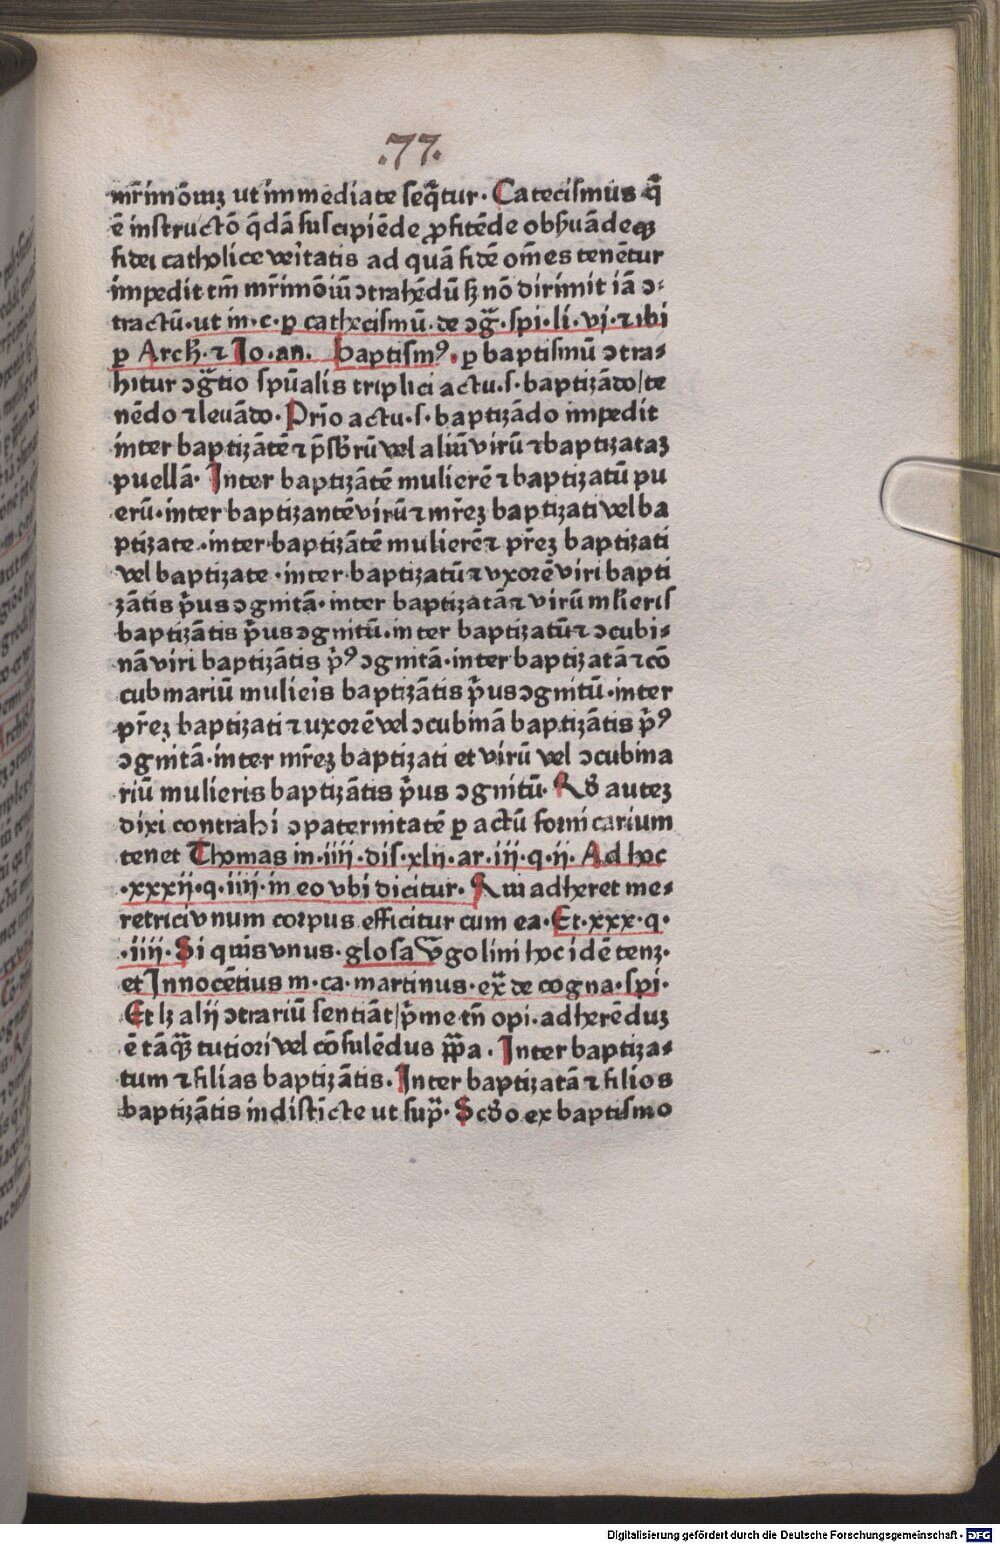 .77.
mr̄imōiuꝫ ut immediate seq̄tur· Catecismus q̄
ē instructō q̄dā suscipiēde ꝓfitēde obẜuādeqꝫ
fidei catholice veritatis ad quā fidē om̄es tenētur
impedit tm̄ mr̄imōiū ↄtrahēdū sꝫ nō dirimit iā ↄ⸗
tractū·ut in·c·ꝑ cathecismū·de ↄg̃·spi·li·vj·⁊ ibi
ꝑ Arch̄·⁊ Io·an. baptismꝰ· ꝑ baptismū ↄtra⸗
hitur ↄg̃tio spūalis triplici actu·s·baptizādo/te
nēdo ⁊ levādo· Prīo actu·s·baptizādo impedit
inter baptizātē ⁊ p̄sb̄rū vel aliū virū ⁊ baptizataꝫ
puellā· Inter baptizātē mulierē ⁊ baptizatū pu
erū·inter baptizantē virū ⁊ mr̄eꝫ baptizati vel ba
ptizate·inter baptizātē mulierē ⁊ pr̄eꝫ baptizati
vel baptizate·inter baptizatū ⁊ vxorē viri bapti
zātis p̄us ↄgnitā·inter baptizatā ⁊ virū ml̄ieris
baptizātis p̄us ↄgnitū·inter baptizatū ⁊ ↄcubi⸗
nā viri baptizātis p̄ꝰ ↄgnitā·inter baptizatā ⁊ cō
cubinariū mulieris baptizātis p̄us ↄgnitū·inter
pr̄eꝫ baptizati ⁊ uxorē vel ↄcubinā baptizātis p̄ꝰ
ↄgnitā·inter mr̄eꝫ baptizati et virū vel ↄcubina
riū mulieris baptizātis p̄us ↄgnitū· auteꝫ
dixi contrahi ↄpaternitatē ꝑ actū fornicarium
tenet Thomas in·iiii·dis·xlii·ar·iii·q·ii· Ad hoc
·xxxii·q·iiii·in eo vbi dicitur· adheret me⸗
retrici vnum corpus efficitur cum ea· Et·xxx·q·
·iiii· Si quis vnus·glosa Vgolini hoc idē tenꝫ·
et Innocētius in·ca·martinus·ex̄ de cogna·spi·
Et lꝫ alij ↄtrariū sentiāt/p̄me tn̄ opi·adherēduꝫ
ē tāq̄ꝫ tutiori vel cōsulēdus pp̄a· Inter baptiza⸗
tum ⁊ filias baptizātis· Inter baptizatā ⁊ filios
baptizātis indisticte ut sup̃· Scd̄o ex baptismo
Digitalisierung gefördert durch die Deutsche Forschungsgemeinschaft - DFG